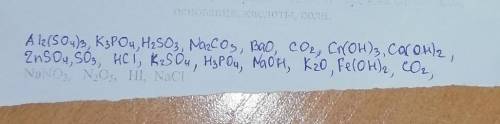 основания, кислоты, соли.
Al2(SO4)3, K3PO4, H2SO3, Na2CO3, BaO, CO2, Cr(OH)3, Co(OH)2,
ZnSO4, SO3, HCl, K2SO4, H3PO4, NaOH, K2O, Fe(OH)2, CO2,
NaNO3, N2O5, HI, NaCl